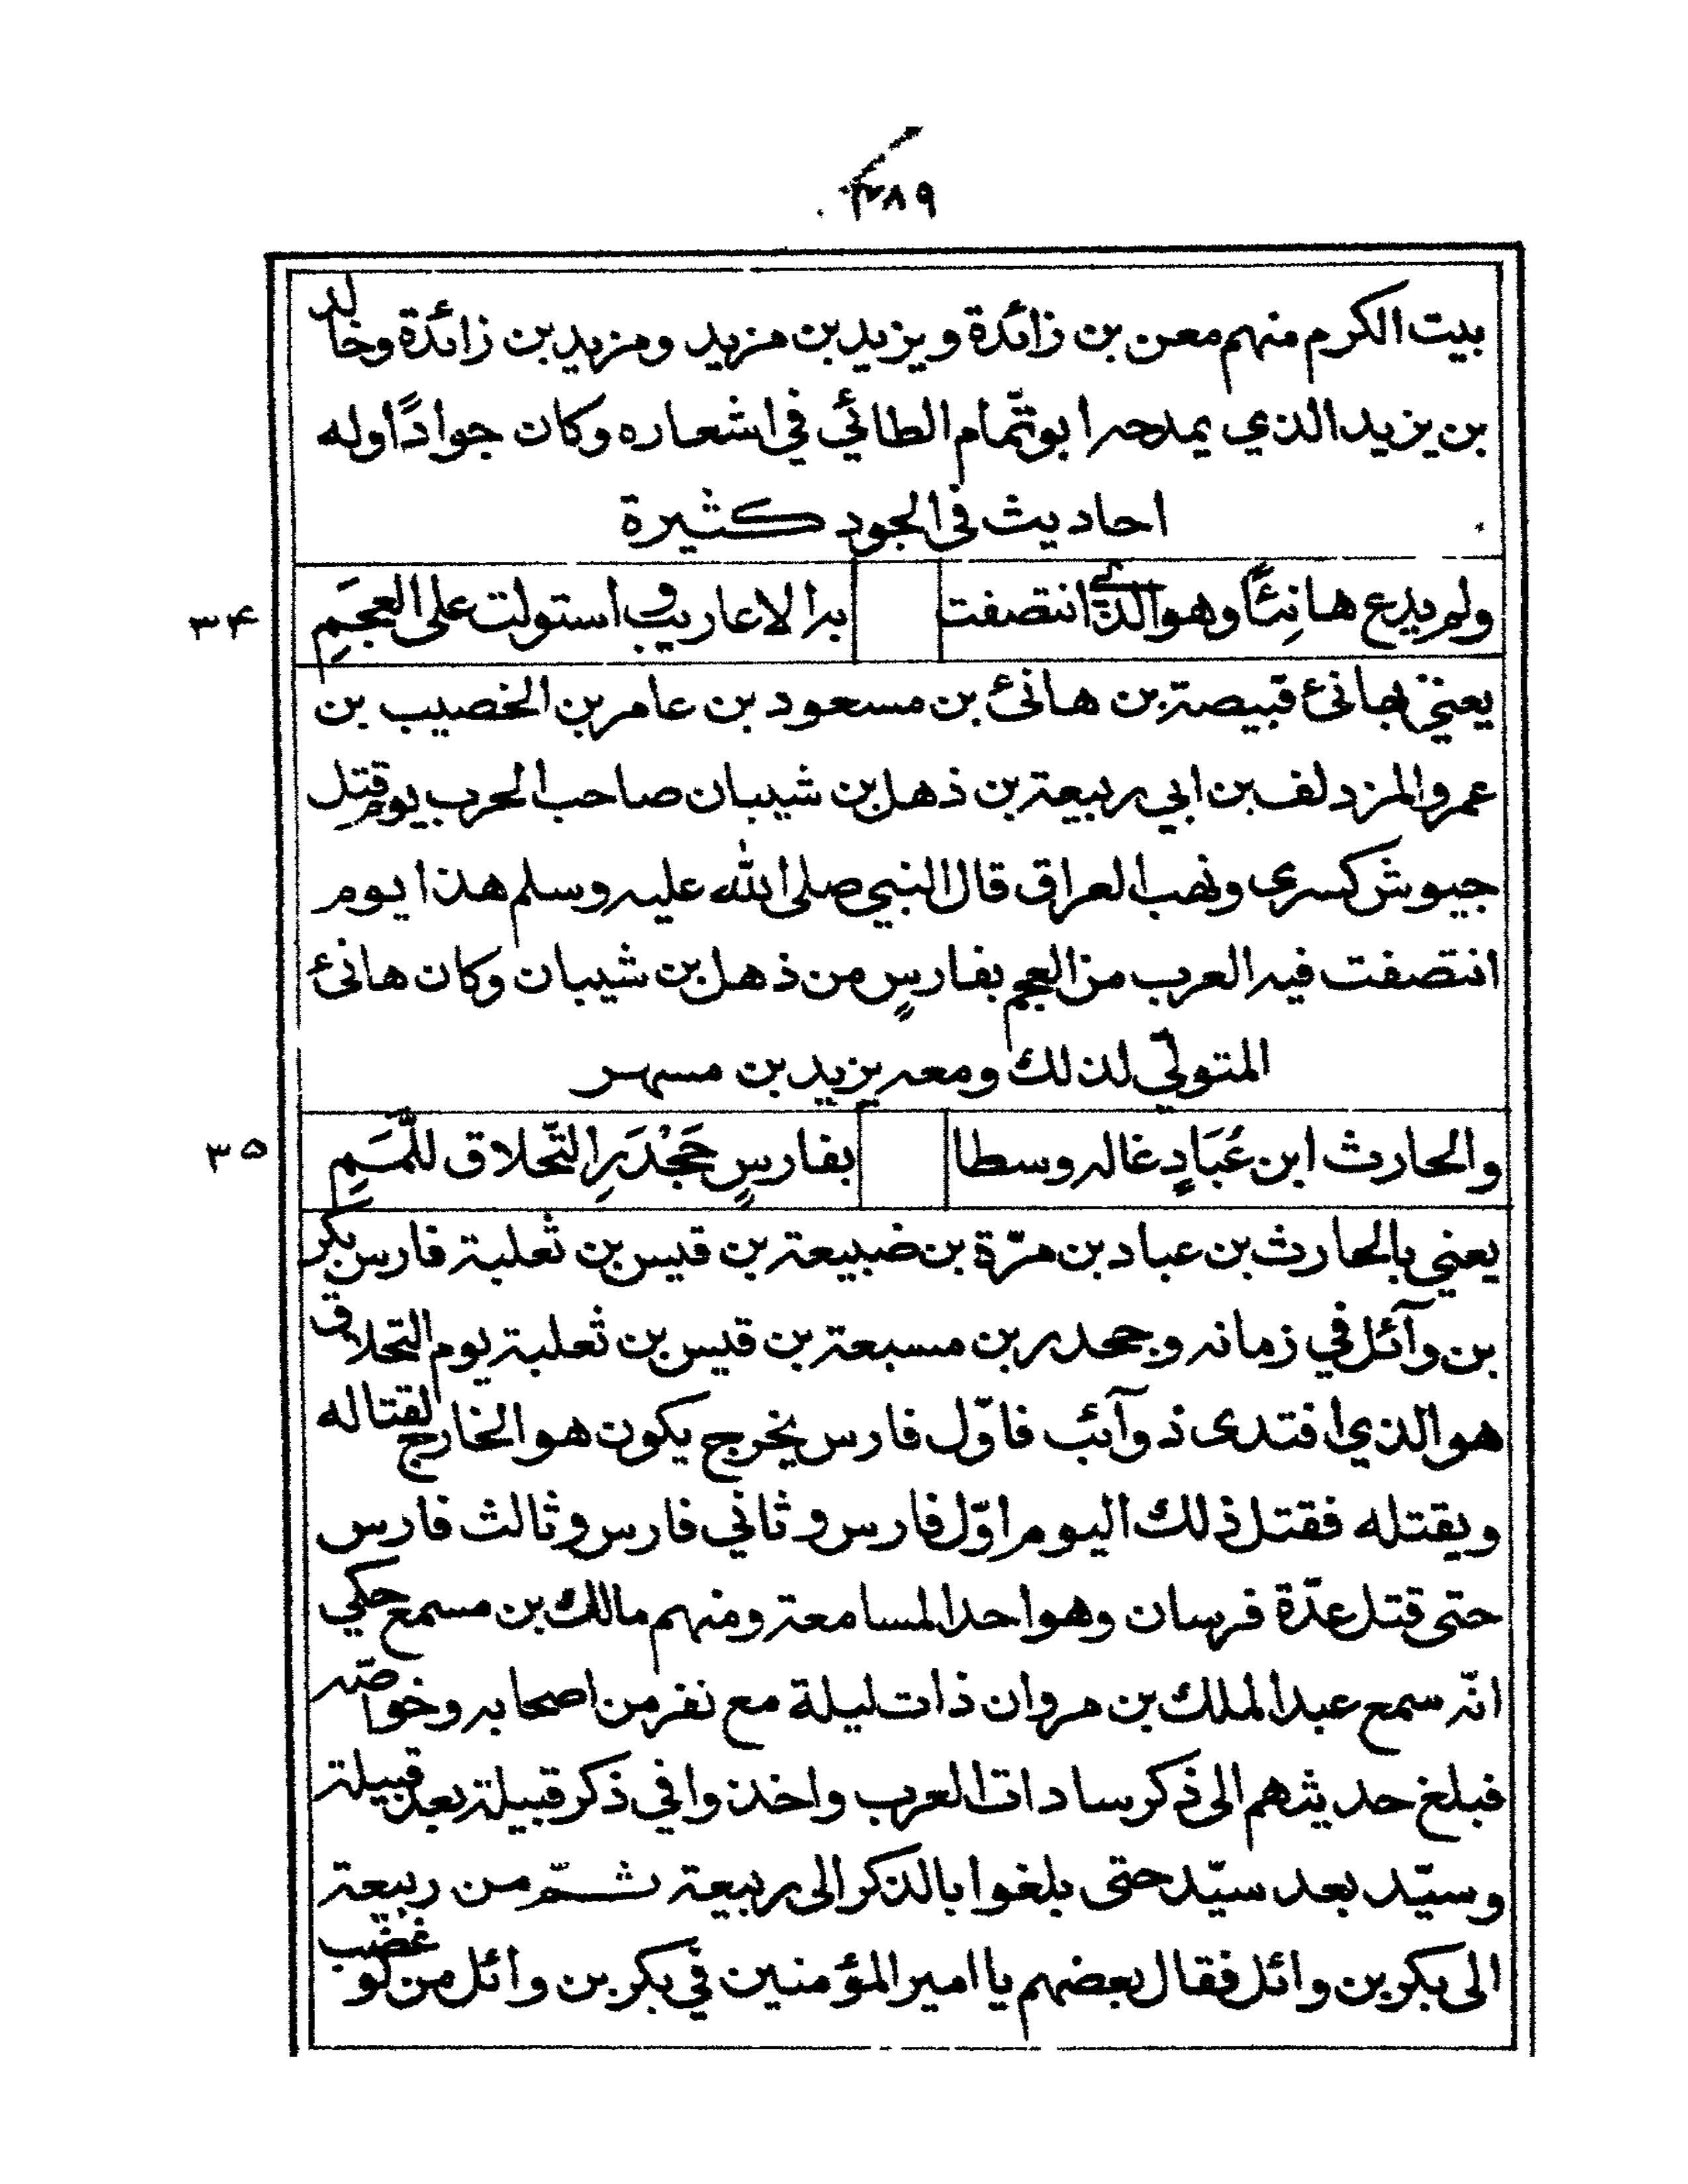 ٣٨٩
بيت الكرم منهم معن بن زائدة ويزيد بن مزيد ومزيد بن زائدة وخالد
بن يزيد الذي يمدحه ابو تمّام الطائي في اشعاره وكان جوادًا وله
احاديث في الجود كثيرة
ولم يدع هانِئًا وهو الذي انتصفت به الاعاريب واستولت على العجَمِ ٣۴
يعني بهانئ قبيصة بن هانئ بن مسعود بن عامر بن الخصيب بن
عمرو المزدلف بن ابي ربيعة بن ذهل بن شيبان صاحب الحرب يوم قتل
جيوش كسرى ونهب العراق قال النبي صلى الله عليه وسلم هذا يوم
انتصفت فيه العرب من العجم بفارسٍ من ذهل بن شيبان وكان هانئ
المتولّي لذلك ومعه يزيد بن مسهر
والحارث ابن عُبَادٍ غاله وسطا بفارسٍ جَحْدَرِ التّحلاق للّمَمِ ٣۵
يعني بالحارث بن عباد بن مرّة بن ضبيعة بن قيس بن ثعلبة فارس بكر
بن وآئل في زمانه وجحدر بن مسبعة بن قيس بن ثعلبة يوم التحلاق
هو الذي افتدى ذوآئب فاوّل فارس يخرج يكون هو الخارج لقتاله
ويقتله فقتل ذلك اليوم اوّل فارس وثاني فارس وثالث فارس
حتى قتل عدّة فرسان وهو احد المسامعة ومنهم مالك بن مسمع حكي
انّه سمع عبد الملك بن مروان ذات ليلة مع نفر من اصحابه وخواصّه
فبلغ حديثهم الى ذكر سادات العرب واخذوا في ذكر قبيلة بعد قبيلة
وسيّد بعد سيّد حتى بلغوا بالذكر الى ربيعة ثمّ من ربيعة
الى بكر بن وائل فقال بعضهم يا امير المؤمنين في بكر بن وائل من لو غضب